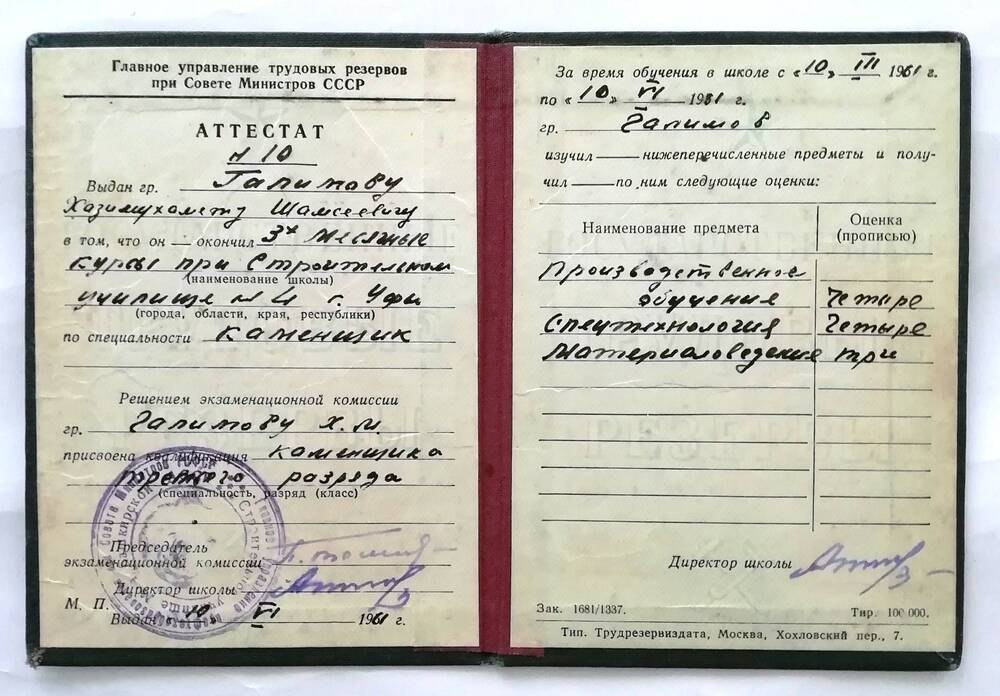 Главное управление трудовых резервов
при Совете Министров СССР
АТТЕСТАТ
н 10
Выдан гр. Галимову
Хазимухамету Шамсеевичу
в том, что он — окончил 3х месячные
курсы при Строительном
(наименование школы)
училище №4 г. Уфы
(города, области, края, республики)
по специальности каменщик
Решением экзаменационной комиссии
гр. Галимову Х.Ш
присвоена квалификация каменщика
третьего разряда
(специальность, разряд (класс)
Председатель
экзаменационной комиссии
Директор школы
М. П.
Выдан «10 VI 1961 г.
За время обучения в школе с «10» III 1961 г.
по «10» VI 1961 г.
гр. Галимов
изучил — нижеперечисленные предметы и полу-
чил — по ним следующие оценки:
Наименование предмета Оценка (прописью)
Производственное
обучение Четыре
Спецтехнология Четыре
Материаловедение три
Директор школы
Зак. 1681/1337. Тир. 100 000.
Тип. Трудрезервиздата, Москва, Хохловский пер., 7.